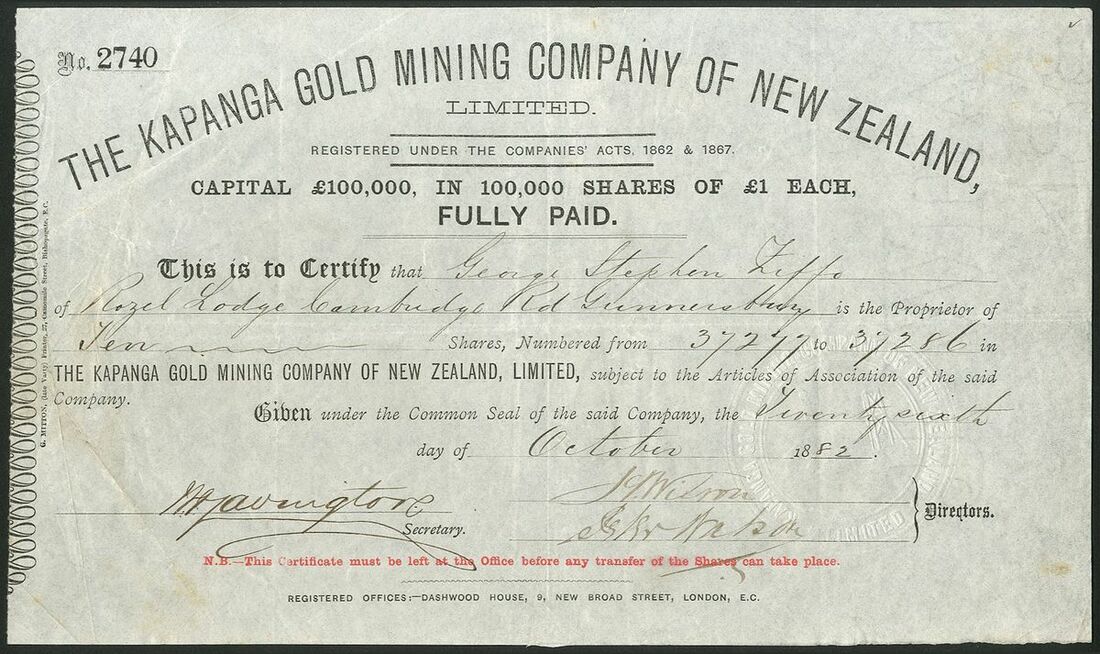 No. 2740
THE KAPANGA GOLD MINING COMPANY OF NEW ZEALAND,
LIMITED.
REGISTERED UNDER THE COMPANIES' ACTS, 1862 & 1867.
CAPITAL £100,000, IN 100,000 SHARES OF £1 EACH,
FULLY PAID.
This is to Certify that George Stephen Ziffo
of Rozel Lodge Cambridge Rd Gunnersbury is the Proprietor of
Ten Shares, Numbered from 37277 to 37286 in
THE KAPANGA GOLD MINING COMPANY OF NEW ZEALAND, LIMITED, subject to the Articles of Association of the said
Company.
Given under the Common Seal of the said Company, the Twenty sixth
day of October 1882.
Secretary.
Wilson
Directors.
N.B.—This Certificate must be left at the Office before any transfer of the Shares can take place.
REGISTERED OFFICES:—DASHWOOD HOUSE, 9, NEW BROAD STREET, LONDON, E.C.
G. MITTON, (late Vaty) Printer, 27, Camomile Street, Bishopsgate, E.C.